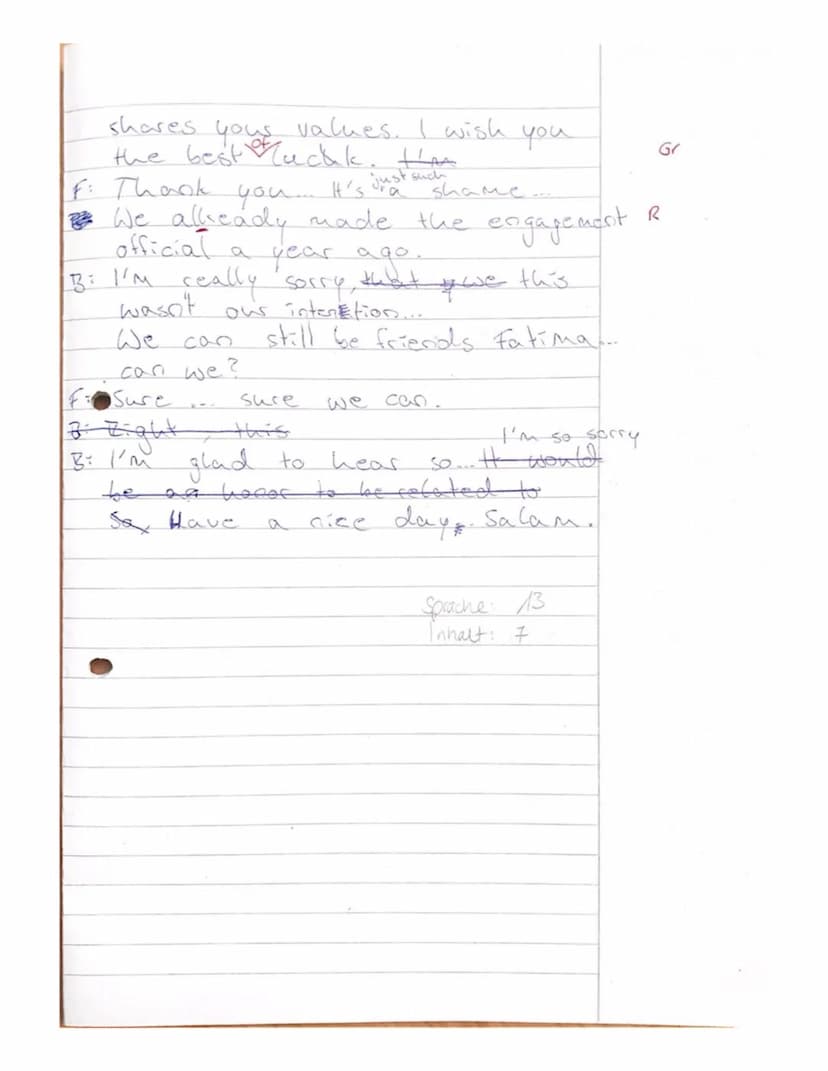 shares your values. I wish you
the best of luck. I'm Gr
F: Thank you... It's just such a shame...
We allready made the engagement R
official a year ago.
B: I'm really sorry, that we this
wasn't our intention...
We can still be friends Fatima...
can we?
F: Sure ... sure we can.
B: Right, this
I'm so sorry
B: I'm glad to hear so... It would
be an honor to be related to
So, Have a nice day. Salam.
Sprache: 13
Inhalt: 7